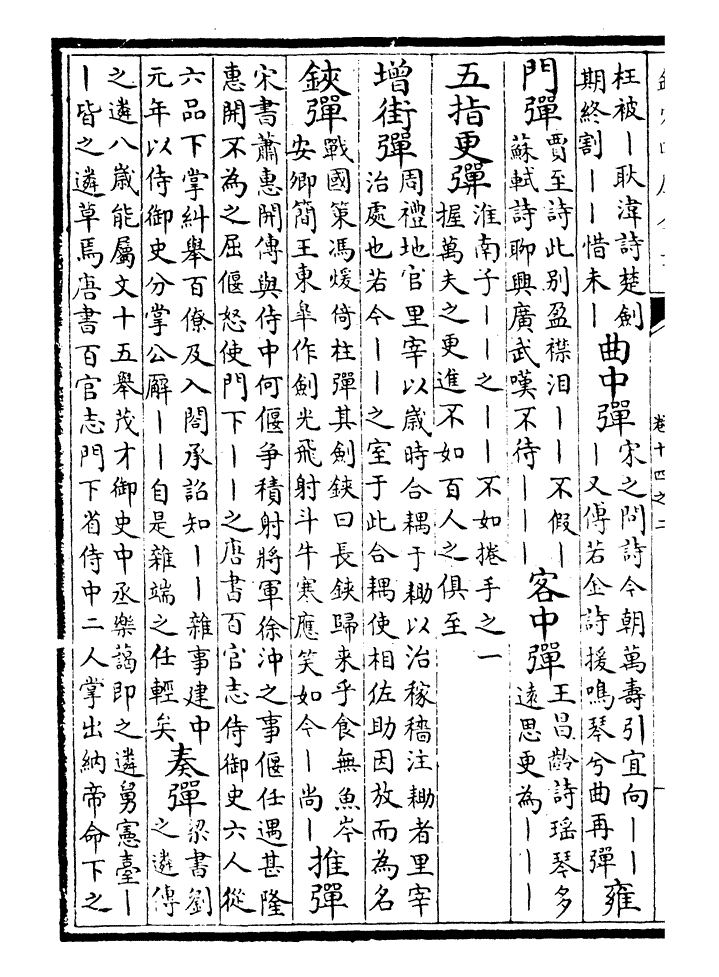 卷十四之二
枉被丨耿湋詩楚劍
期終割丨丨惜未丨
曲中彈
宋之問詩今朝萬壽引宜向丨丨
丨又傅若金詩援鳴琴兮曲再彈
雍
門彈
賈至詩此别盈襟泪丨丨不假丨
蘇軾詩聊興廣武嘆不待丨丨丨
客中彈
王昌齡詩瑶琴多
遠思更為丨丨丨
五指更彈
淮南子丨丨之丨丨不如捲手之一
握萬夫之更進不如百人之俱至
增街彈
周禮地官里宰以歲時合耦于耡以治稼穡注耡者里宰
治處也若今丨丨之室于此合耦使相佐助因放而為名
鋏彈
戰國策馮煖倚柱彈其劍鋏曰長鋏歸来乎食無魚岑
安卿簡王東臯作劍光飛射斗牛寒應笑如今丨尚丨
推彈
宋書蕭惠開傳與侍中何偃争積射將軍徐沖之事偃任遇甚隆
惠開不為之屈偃怒使門下丨丨之唐書百官志侍御史六人從
六品下掌糾舉百僚及入閤承詔知丨丨雜事建中
元年以侍御史分掌公廨丨丨自是雜端之任輕矣
奏彈
梁書劉
之遴傳
之遴八歲能屬文十五舉茂才御史中丞樂藹即之遴舅憲臺丨
丨皆之遴草焉唐書百官志門下省侍中二人掌出納帝命下之